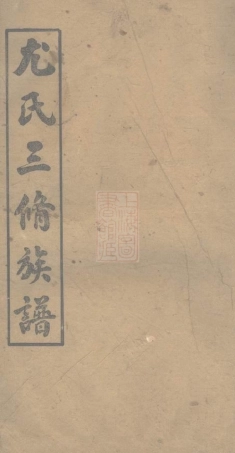 尤氏三脩族譜